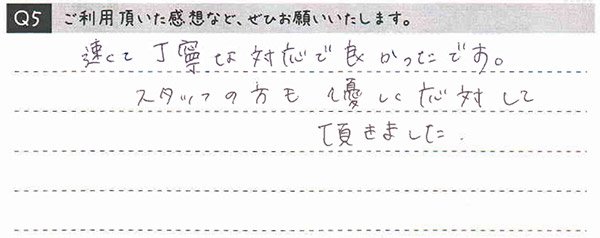 Q5 ご利用頂いた感想など、ぜひお願いいたします。
速くて丁寧な対応で良かったです。
スタッフの方も優しく応対して
頂きました.